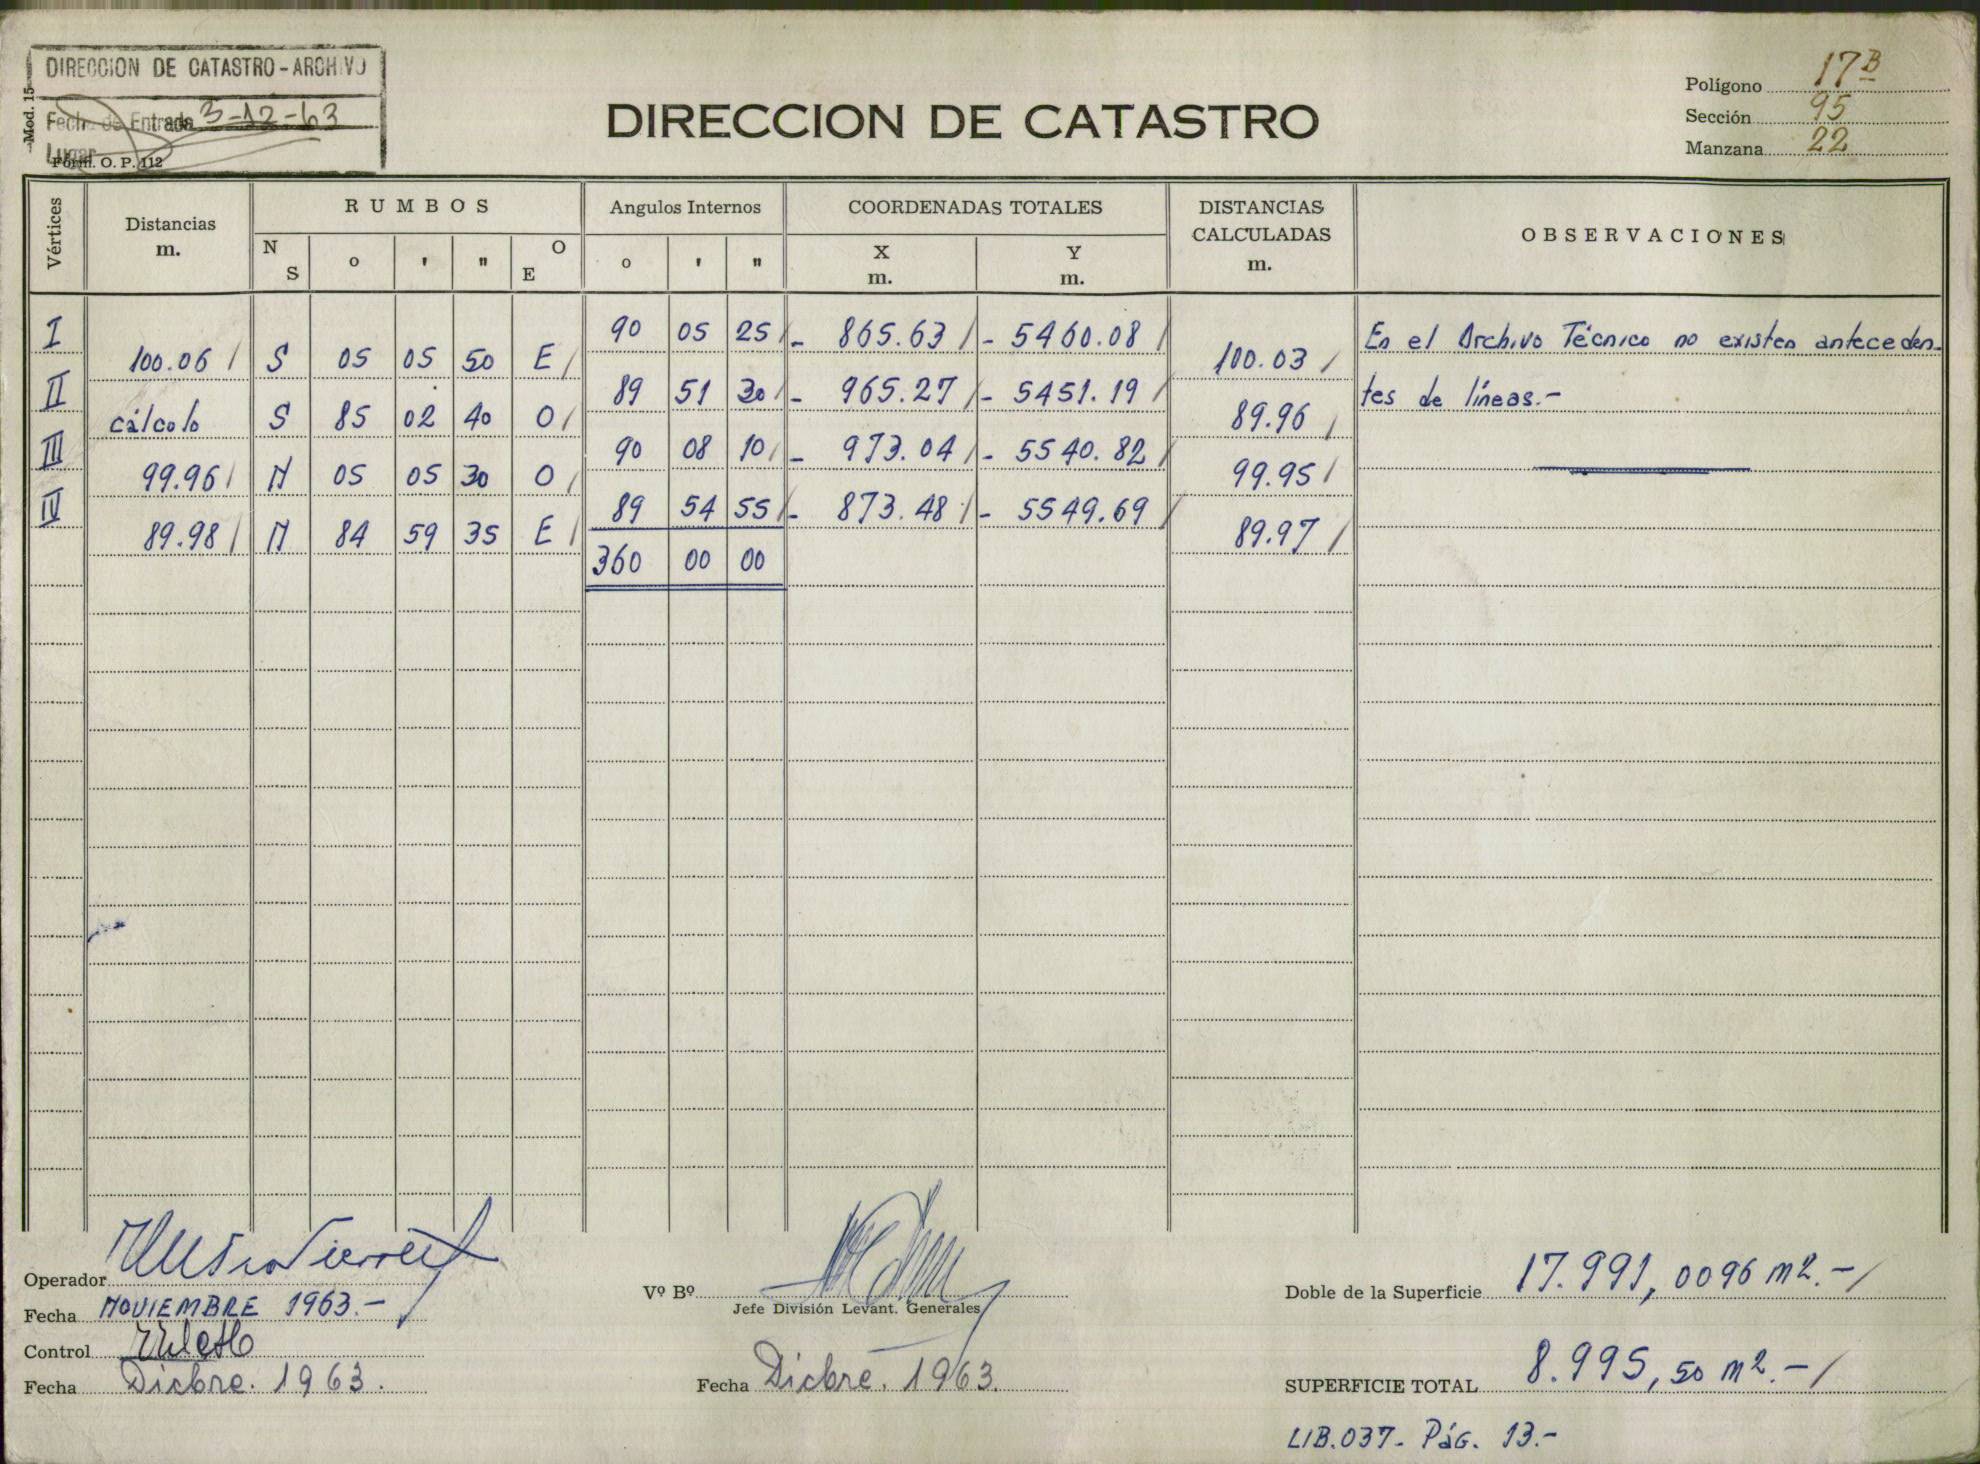 DIRECCION DE CATASTRO - ARCHIVO
Fecha de Entrada 3-12-63
Lugar
Mod. 15
Form. O. P. 112
DIRECCION DE CATASTRO
Polígono 17B
Sección 95
Manzana 22
Vértices
Distancias m.
RUMBOS
N S o ' " O E
Angulos Internos
o ' "
COORDENADAS TOTALES
X m. Y m.
DISTANCIAS CALCULADAS m.
OBSERVACIONES
I 90 05 25 - 865.63 - 5460.08 En el Archivo Técnico no existen anteceden-
100.06 S 05 05 50 E 100.03
II 89 51 30 - 965.27 - 5451.19 tes de líneas.-
cálculo S 85 02 40 O 89.96
III 90 08 10 - 973.04 - 5540.82
99.96 N 05 05 30 O 99.95
IV 89 54 55 - 873.48 - 5549.69
89.98 N 84 59 35 E 89.97
360 00 00
Operador
Fecha NOVIEMBRE 1963.-
Control
Fecha Dicbre. 1963.
Vº Bº
Jefe División Levant. Generales
Fecha Dicbre. 1963.
Doble de la Superficie 17.991,0096 m2.-
SUPERFICIE TOTAL 8.995,50 m2.-
LIB.037- PÁG. 13.-